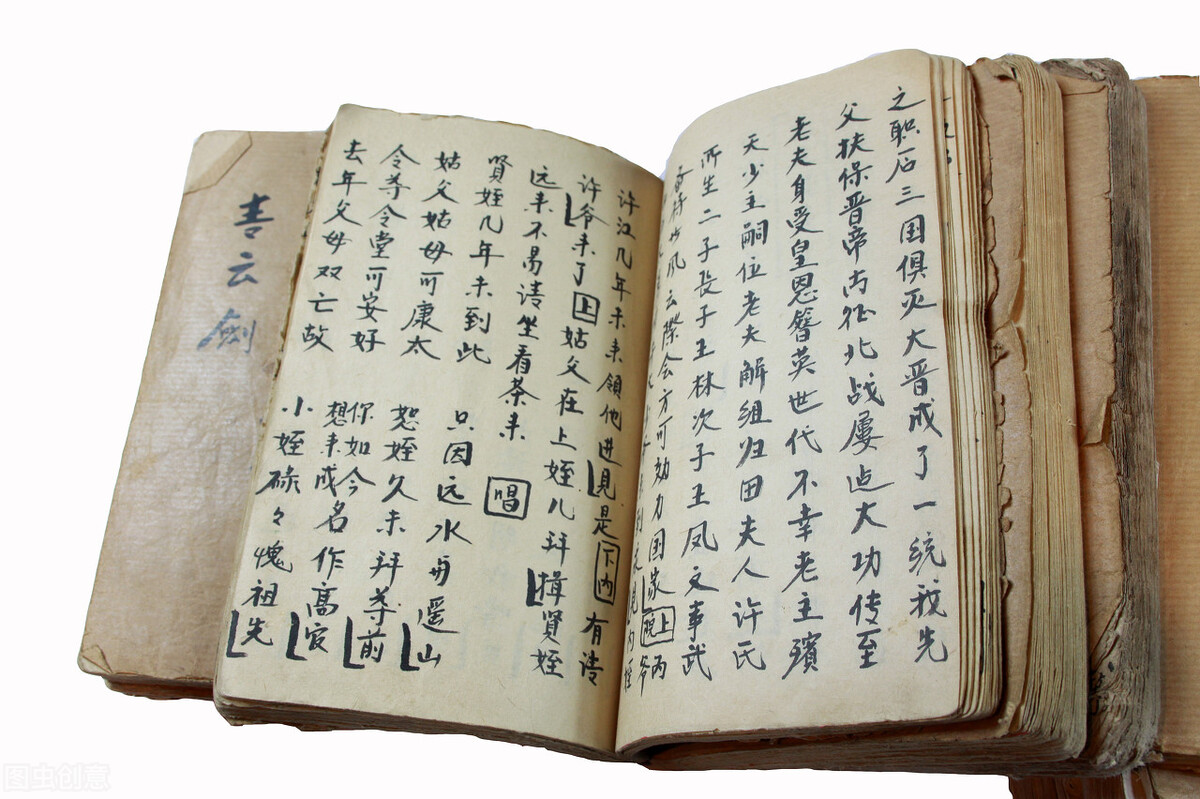 之职后三国俱灭大晋成了一统我先
父扶保晋帝南征北战屡迠大功传至
老夫身受皇恩簪英世代不幸老主殡
天少主嗣位老夫解组归田夫人许氏
所生二子长子王林次子王凤文事武
风云际会方可効力国家上
许江几年未来领他进见是下内有请
许爷来了上姑父在上姪儿拜揖贤姪
远来不易请坐看茶来唱
贤姪几年未到此 只因远水与遥山
姑父姑母可康太 恕姪久未拜尊前
令尊令堂可安好 你如今想来成名作高官
去年父母双亡故 小姪碌々愧祖先
云劍
图虫创意